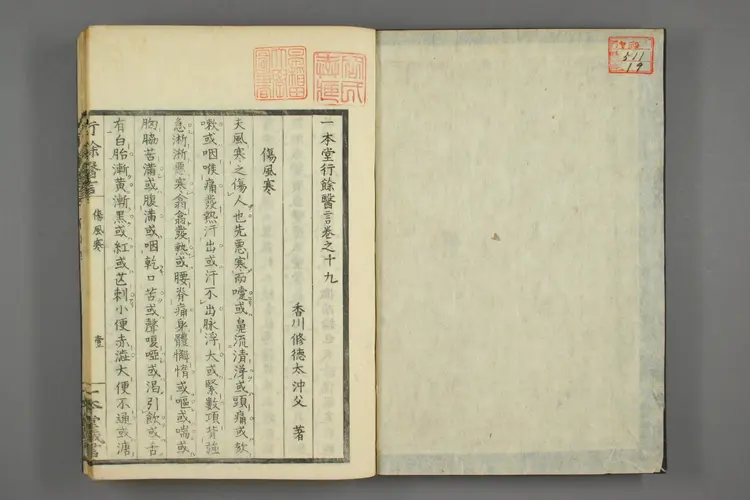 一本堂行餘醫言卷之十九
香川修德太沖父 著
傷風寒
夫風寒之傷人也先惡寒而嚏或鼻流清涕或頭痛或欬
嗽或咽喉痛發熱汗出或汗不出脉浮大或緊數項背強
急淅淅惡寒翕翕發熱或腰脊痛身體懈惰或嘔或喘或
胸脇苦滿或腹滿或咽乾口苦或聲嗄啞或渴引飲或舌
有白胎漸黃漸黑或紅或芒刺小便赤澁大便不通或溏
行餘醫言
傷風寒
壹
一本堂藏
511
19